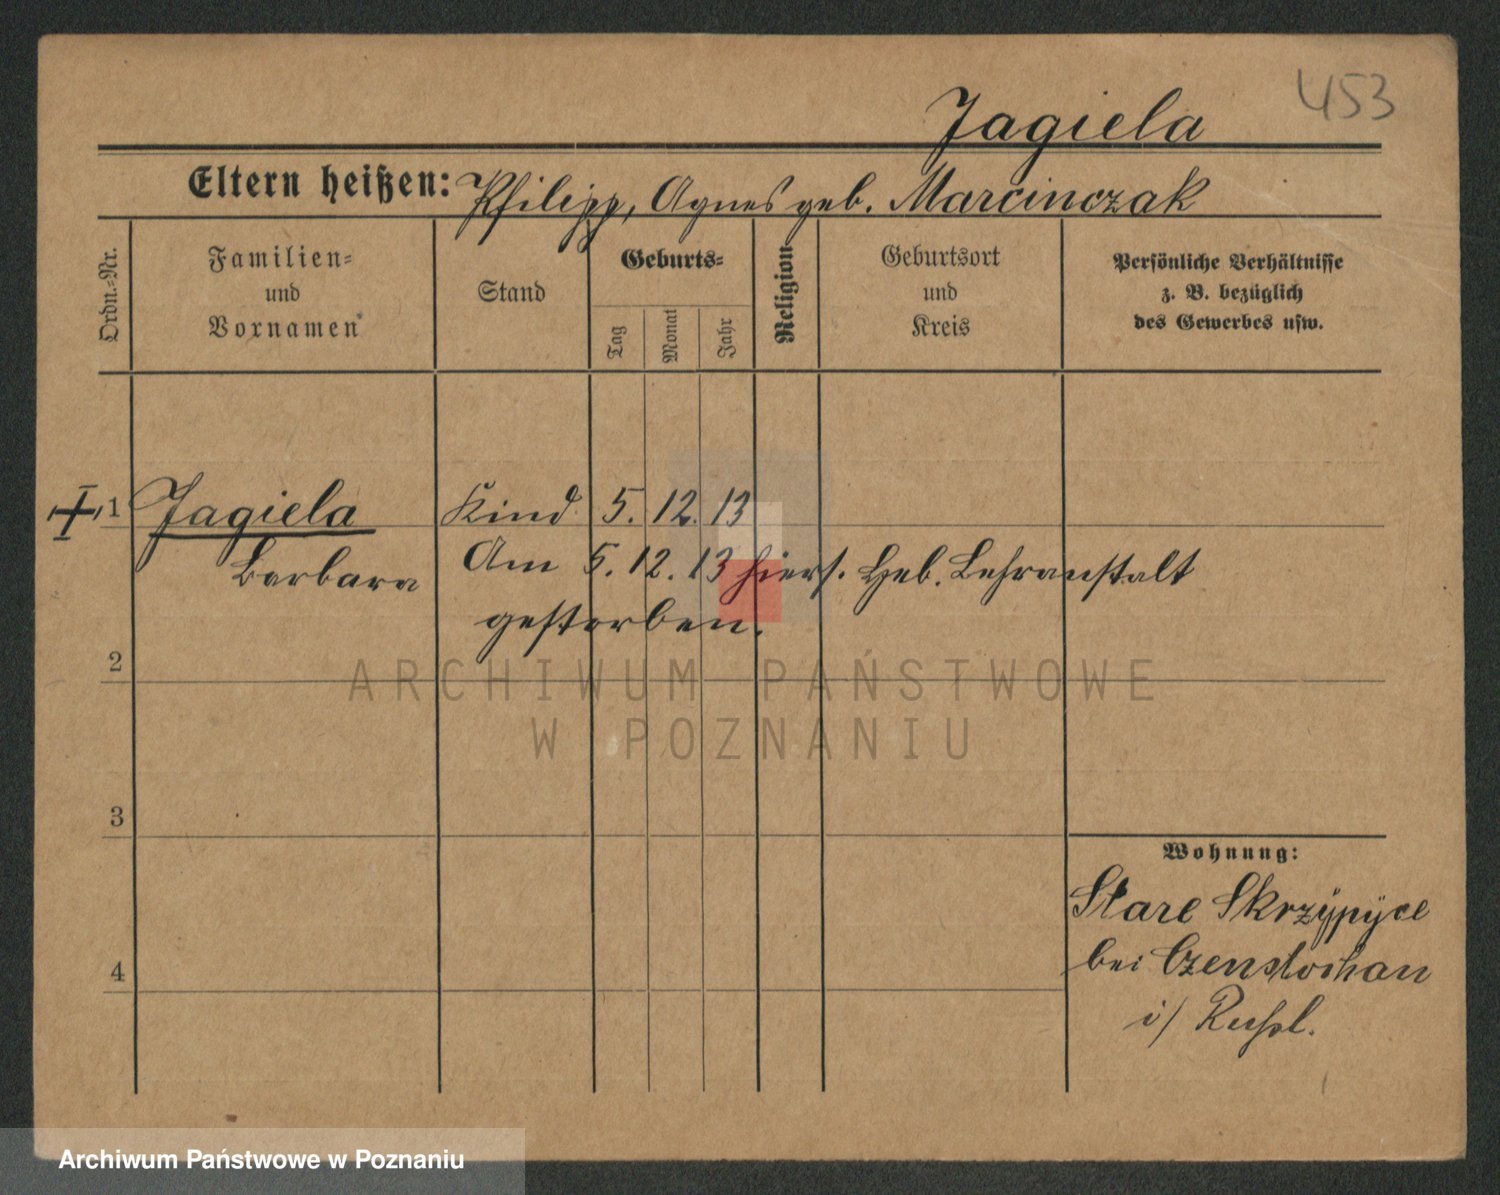 453
Jagiela
Eltern heißen: Philipp, Agnes geb. Marcinczak
Ordn.-Nr.
Familien-
und
Vornamen
Stand
Geburts-
Tag
Monat
Jahr
Religion
Geburtsort
und
Kreis
Persönliche Verhältnisse
z. B. bezüglich
des Gewerbes usw.
1 Jagiela Kind 5. 12. 13
Barbara Am 5. 12. 13 hiers. Heb. Lehranstalt
gestorben.
2
ARCHIWUM PAŃSTWOWE
W POZNANIU
3
Wohnung:
Stare Skrzypyce
bei Czenstochau
4
i/ Rußl.
Archiwum Państwowe w Poznaniu